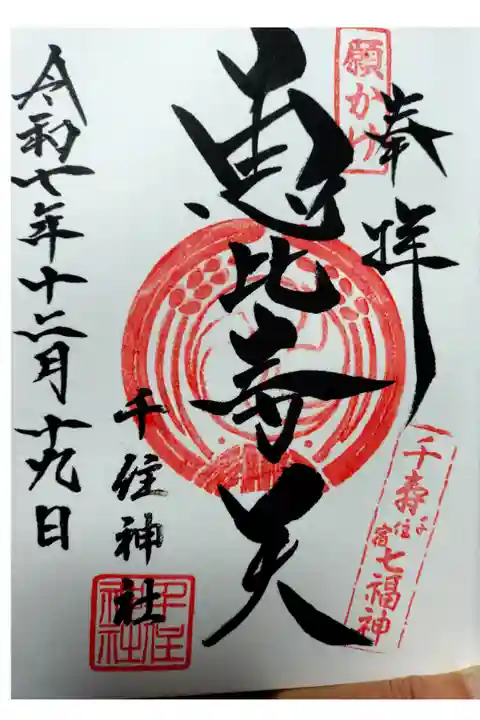 願かけ
奉拝
恵比寿天
千寿
千住宿
七福神
千住神社
千住神社
令和七年十二月十九日